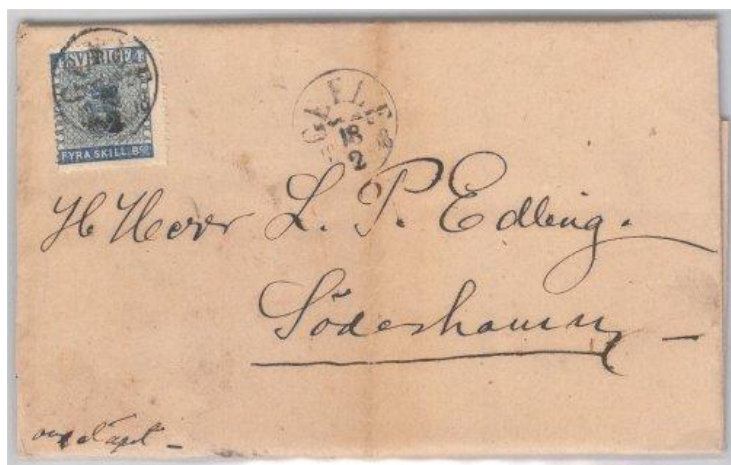 SVERIGE
FYRA SKILL. Bco
GEFLE
18
2
H Herr L. P. Edling.
Söderhamn